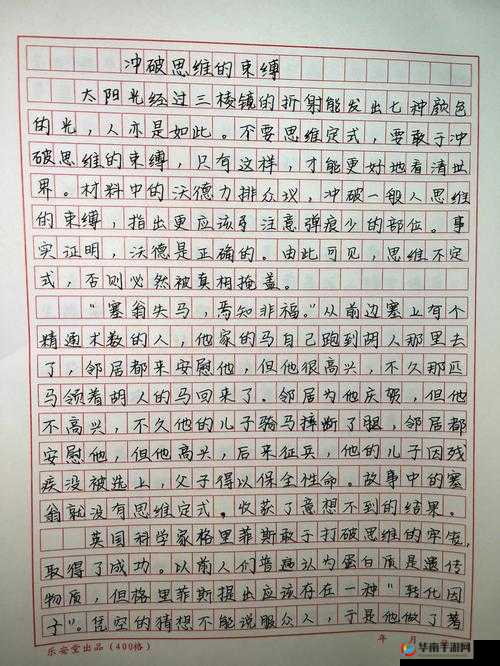 冲破思维的束缚
太阳光经过三棱镜的折射能发出七种颜色
的光，人亦是如此。不要思维定式，要敢于冲
破思维的束缚，只有这样，才能更好地看清世
界。材料中的沃德力排众议，冲破一般人思维
的束缚，指出更应该注意弹痕少的部位。事
实证明，沃德是正确的。由此可见，思维不定
式，否则必然被真相掩盖。
“塞翁失马，焉知非福。”从前边塞上有个
精通术数的人，他家的马自己跑到胡人那里去
了，邻居都来安慰他，但他很高兴，不久那匹
马领着胡人的马回来了。邻居为他庆贺，但他
不高兴，不久他的儿子骑马摔断了腿，邻居都
安慰他，但他高兴，后来征兵，他的儿子因残
疾没被选上，父子得以保全性命。故事中的塞
翁就没有思维定式。收获了意想不到的结果。
英国科学家格里菲斯敢于打破思维的牢笼，
取得了成功。以前人们普遍认为蛋白质是遗传
物质，但格里菲斯提出应该存在一种“转化因
子”。凭空的猜想不能说服众人，于是他做了著
乐安堂出品（400格）
年 月
华南手游网